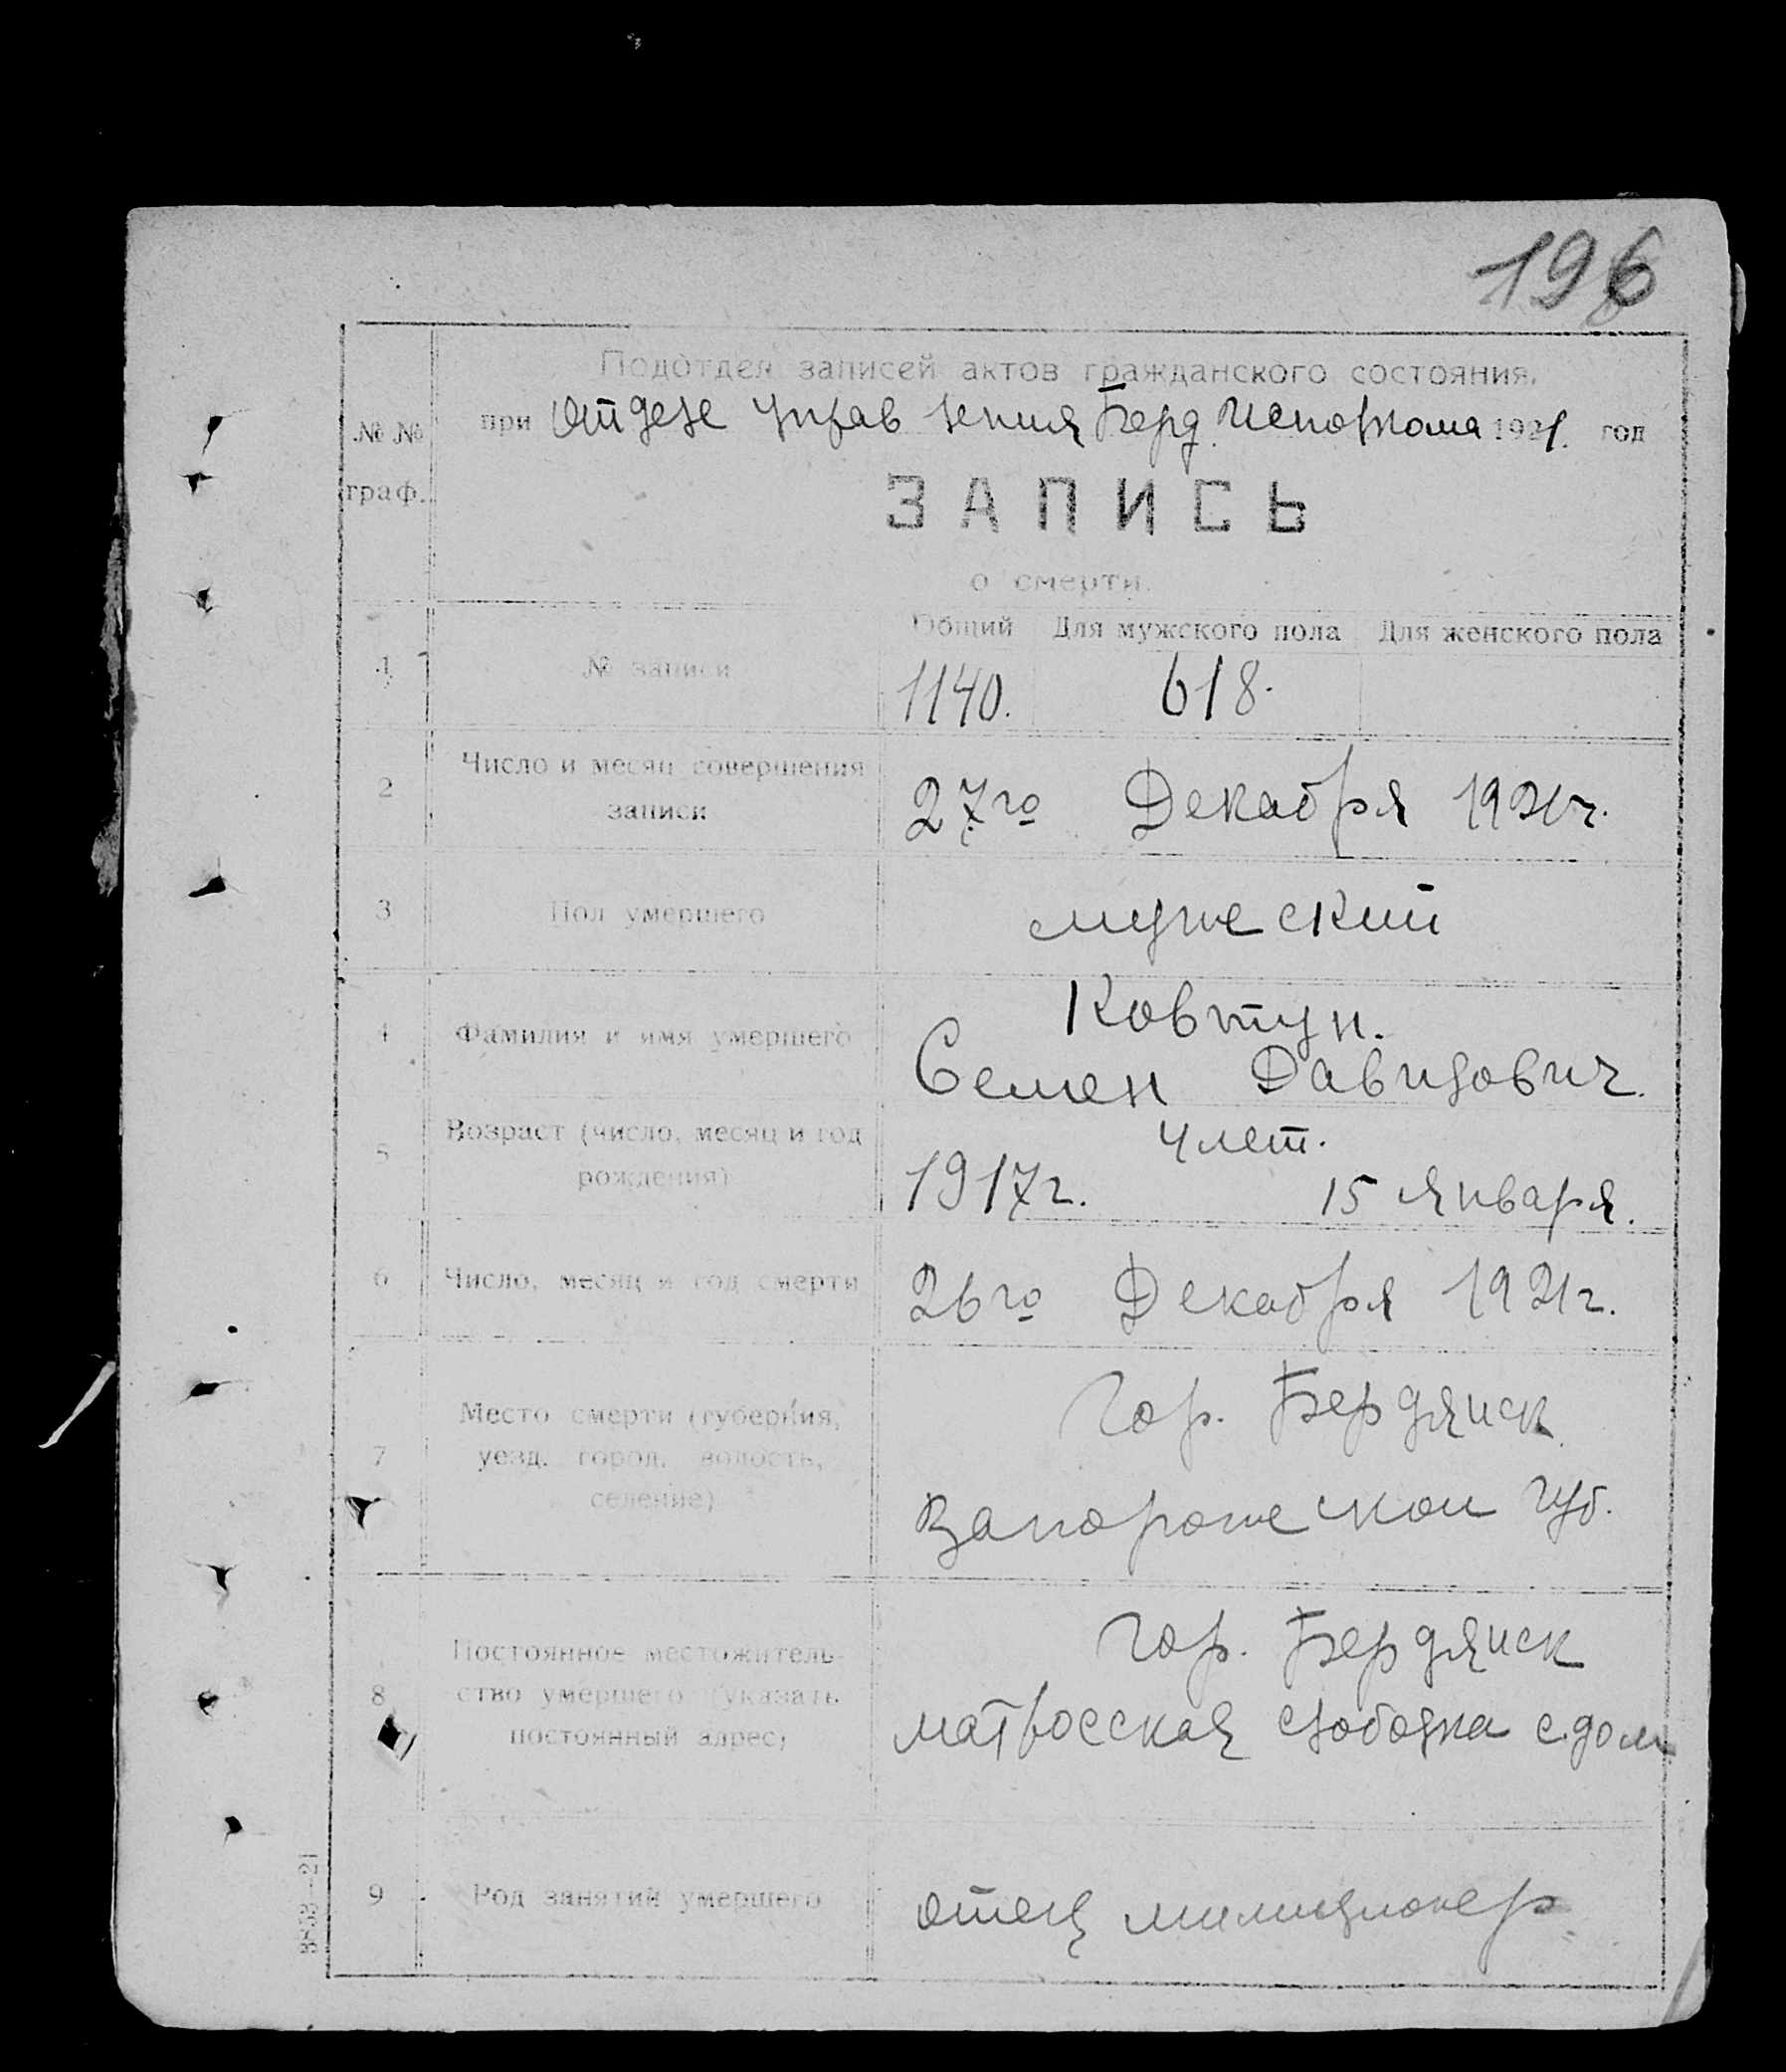 196
Подотдел записей актов гражданского состояния.
№ № граф.
при Отделе Управления Берд. Исполкома 1921. год
ЗАПИСЬ
о смерти.
Общий Для мужского пола Для женского пола
1 № записи 1140. 618.
2 Число и месяц совершения записи 27го Декабря 1921г.
3 Пол умершего мужеский
4 Фамилия и имя умершего Ковтун.
Семен Давидович.
5 Возраст (число, месяц и год рождения) 4 лет.
1917г. 15 Января.
6 Число, месяц и год смерти 26го Декабря 1921г.
7 Место смерти (губерния, уезд, город, волость, селение) Гор. Бердянск
Запорожской губ.
8 Постоянное местожительство умершего (указать постоянный адрес) Гор. Бердянск
матросская слободка с.дом
9 Род занятий умершего отец милиционер
3853—21